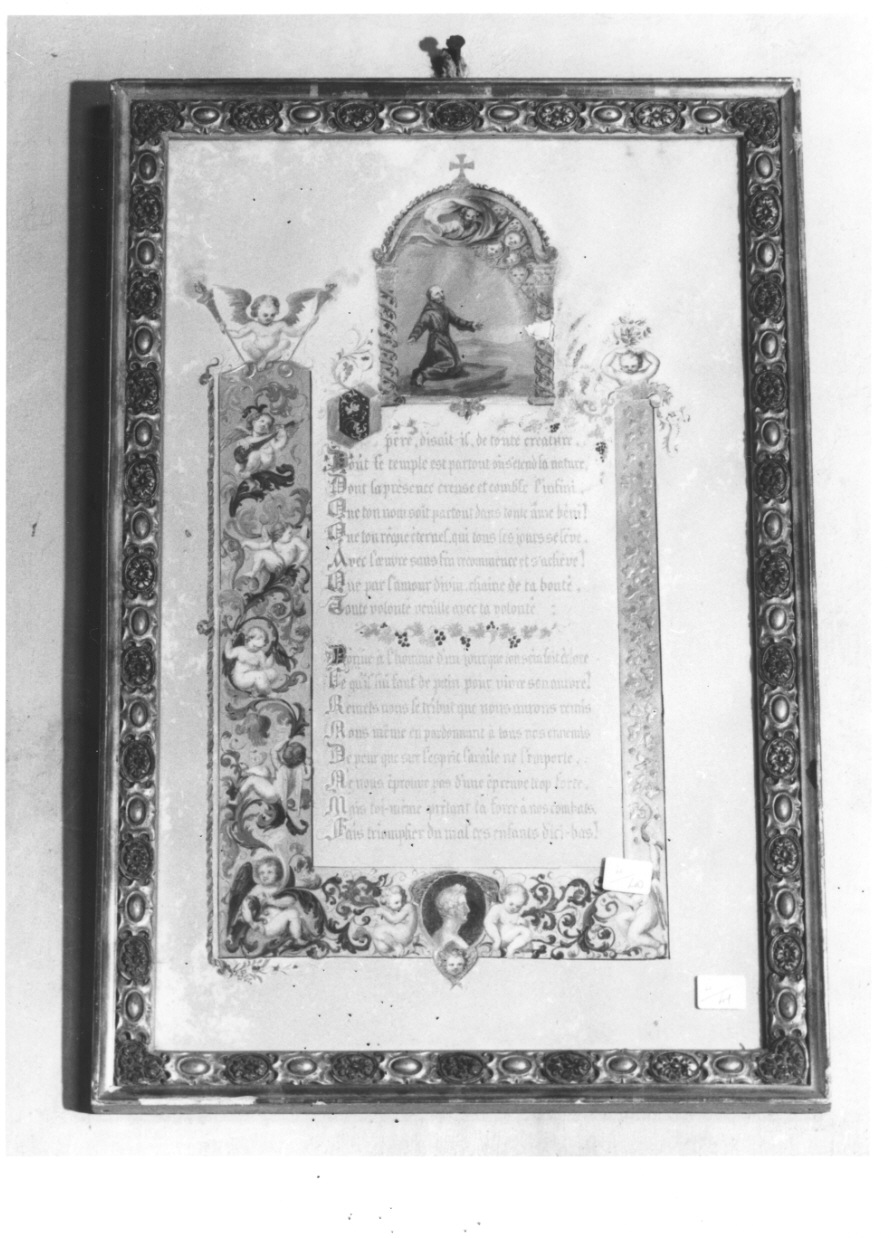 O père, disait-il, de toute créature,
Dont le temple est partout où s'étend la nature,
Dont la présence creuse et comble l'infini,
Que ton nom soit partout dans toute âme béni!
Que ton règne éternel, qui tous les jours se lève,
Avec l'œuvre sans fin recommence et s'achève!
Que par l'amour divin, chaîne de ta bonté,
Toute volonté veuille avec ta volonté
Donne à l'homme d'un jour que ton sein fait éclore
Ce qu'il lui faut de pain pour vivre son aurore!
Remets nous le tribut que nous aurons remis
Nous même en pardonnant à tous nos ennemis
De peur que sur l'esprit l'argile ne l'emporte,
Ne nous éprouve pas d'une épreuve trop forte,
Mais toi-même prêtant ta force à nos combats,
Fais triompher du mal tes enfants d'ici-bas!